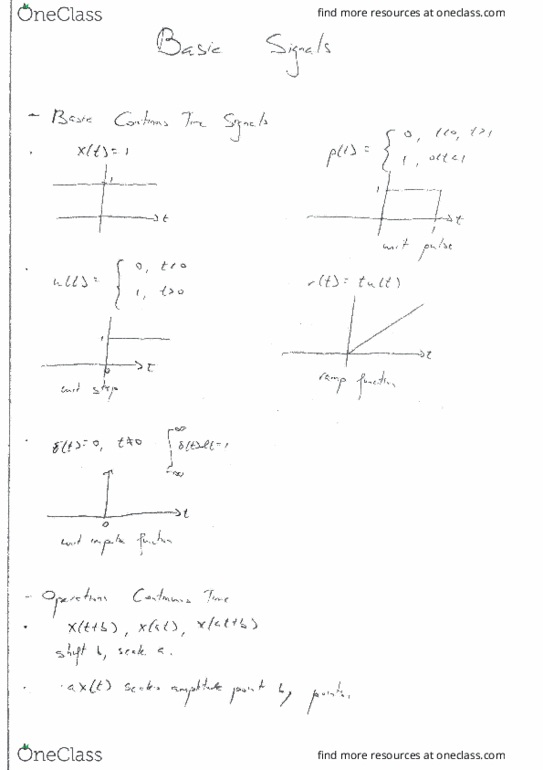 OneClass
find more resources at oneclass.com
Basic Signals
- Basic Continous Time Signals
x(t)=1
1
t
p(t) = { 0, t<0, t>1
1, 0<t<1
1
t
1
unit pulse
u(t) = { 0, t<0
1, t>0
1
t
0
unit step
r(t) = tu(t)
t
ramp function
δ(t)=0, t≠0 ∫ δ(t)dt=1
∞
-∞
t
0
unit impulse function
- Operations Continuous Time
x(t+b), x(at), x(at+b)
shift b, scale a.
ax(t) scales amplitude point by point.
OneClass
find more resources at oneclass.com